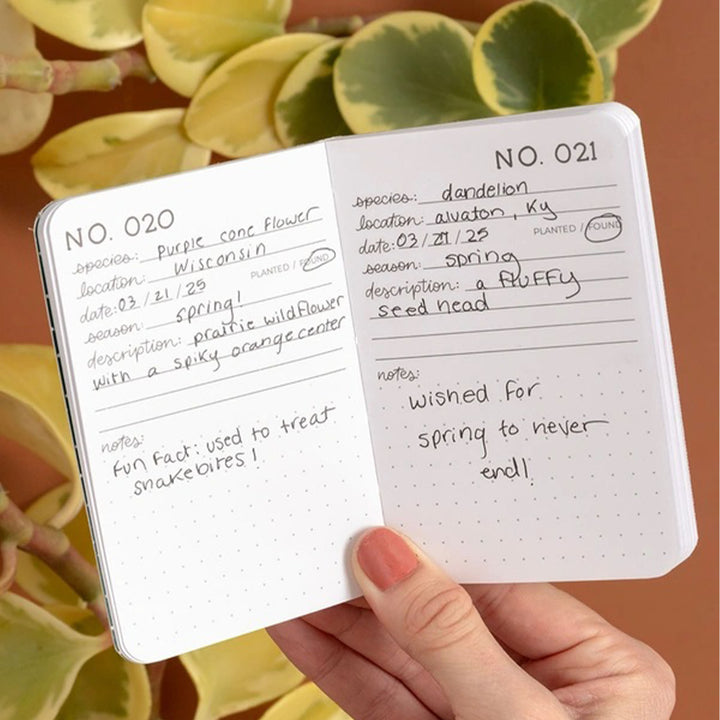 NO. 020
species: purple cone flower
location: Wisconsin
date: 03 / 21 / 25 PLANTED / FOUND
season: spring!
description: prairie wildflower
with a spiky orange center
notes:
fun fact: used to treat
snakebites!
NO. 021
species: dandelion
location: alvaton, ky
date: 03 / 21 / 25 PLANTED / FOUND
season: spring
description: a fluffy
seed head
notes:
wished for
spring to never
end!